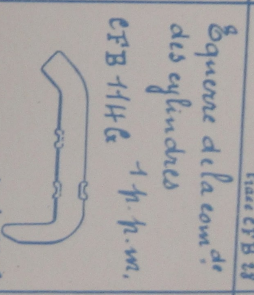 Equerre de la com.de
des cylindres
CFB 11HG
1 p.p.m.